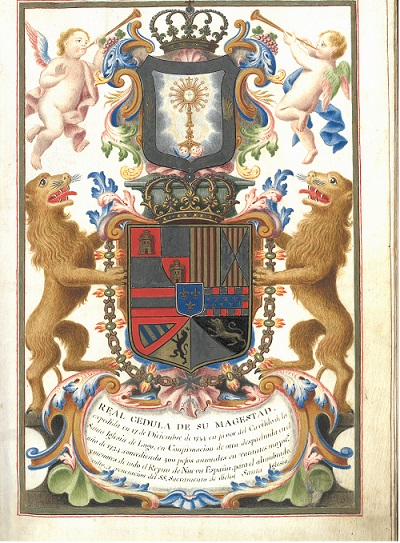 REAL CEDULA DE SU MAGESTAD.
expedida en 17 de Diciembre de en favor del Cavildo de la
Santa Iglesia de Lugo, en Confirmacion de otra despachada el
año de 1724. concediendo 300 pesos annuales en vacantes mayor.^s
y menores de todo el Reyno de Nueva España, para el alumbrado,
y veneracion del SS. Sacramento de dicha Santa Iglesia.